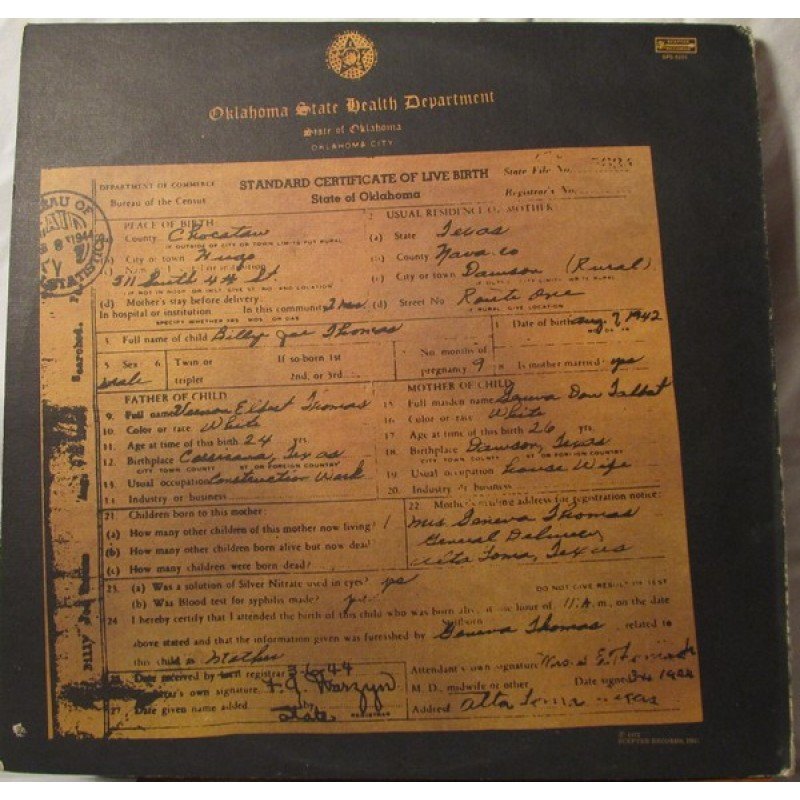 SCEPTER RECORDS
Oklahoma State Health Department
State of Oklahoma
OKLAHOMA CITY
DEPARTMENT OF COMMERCE
Bureau of the Census
STANDARD CERTIFICATE OF LIVE BIRTH
State of Oklahoma
State File No.
Registrar's No.
1944
STATISTICS
PLACE OF BIRTH
County Chocataw
IF OUTSIDE OF CITY OR TOWN LIMITS PUT RURAL
(b) City or town Hugo
511 South 4th St.
IF NOT IN HOSP OR INST. GIVE ST. NO. AND LOCATION
(d) Mother's stay before delivery:
In hospital or institution In this community
SPECIFY WHETHER YRS. MOS. OR DAS.
2 USUAL RESIDENCE OF MOTHER
(a) State Texas
(b) County Nava co
(c) City or town Dawson (Rural)
(d) Street No Route One
IF RURAL GIVE LOCATION
3 Full name of child Billye Joe Thomas
4 Date of birth Aug 7, 1942
5 Sex male
6 Twin or triplet
If so-born 1st 2nd, or 3rd
7 No months of pregnancy 9
8 Is mother married yes
FATHER OF CHILD
9. Full name Vernon Elbert Thomas
10. Color or race White
11. Age at time of this birth 24 yrs.
12. Birthplace Corsicana, Texas
CITY TOWN COUNTY ST OR FOREIGN COUNTRY
13. Usual occupation Construction Work
14. Industry or business
MOTHER OF CHILD
15 Full maiden name Geneva Don Talbat
16 Color or race White
17 Age at time of this birth 26 yrs.
18 Birthplace Dawson, Texas
CITY TOWN COUNTY ST OR FOREIGN COUNTRY
19 Usual occupation House Wife
20. Industry or business
21. Children born to this mother:
(a) How many other children of this mother now living? 1
(b) How many other children born alive but now dead?
(c) How many children were born dead?
22 Mother's mailing address for registration notice:
Mrs Geneva Thomas
General Delivery
Alta Loma, Texas
23 (a) Was a solution of Silver Nitrate used in eyes? yes
(b) Was Blood test for syphilis made?
DO NOT GIVE RESULT OF TEST
24 I hereby certify that I attended the birth of this child who was born alive at the hour of 11:A m., on the date
Stillborn
above stated and that the information given was furnished by Geneva Thomas, related to
this child as Mother
Date received by local registrar 3-6-44
Registrar's own signature
27 Date given name added by
State REGISTRAR
Attendant's own signature
M. D., midwife or other Date signed
Address Alta Loma Texas
Searched
Billy Joe Thomas
℗ 1972
SCEPTER RECORDS, INC.